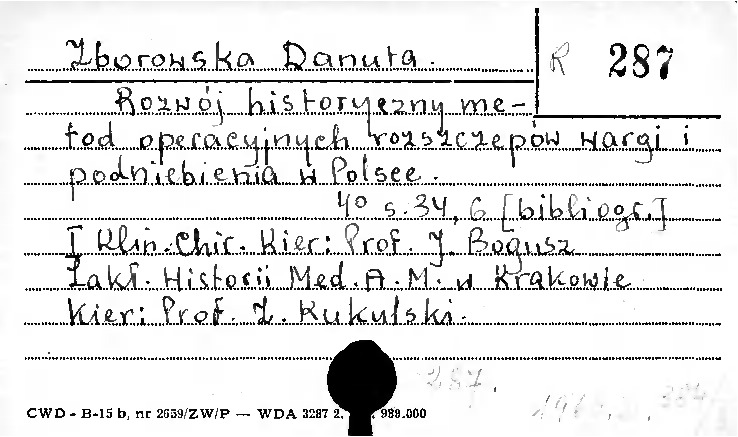 Zborowska Danuta.
R 287
Rozwój historyczny me-
tod operacyjnych rozszczepów wargi i
podniebienia w Polsce.
4° s. 34, 6 [bibliogr.]
I Klin. Chir. Kier: Prof. J. Bogusz
Zakł. Historii Med. A. M. w Krakowie
Kier: Prof. Z. Kukulski.
287.
CWD - B-15 b, nr 2659/ZW/P — WDA 3287 2. 989.000